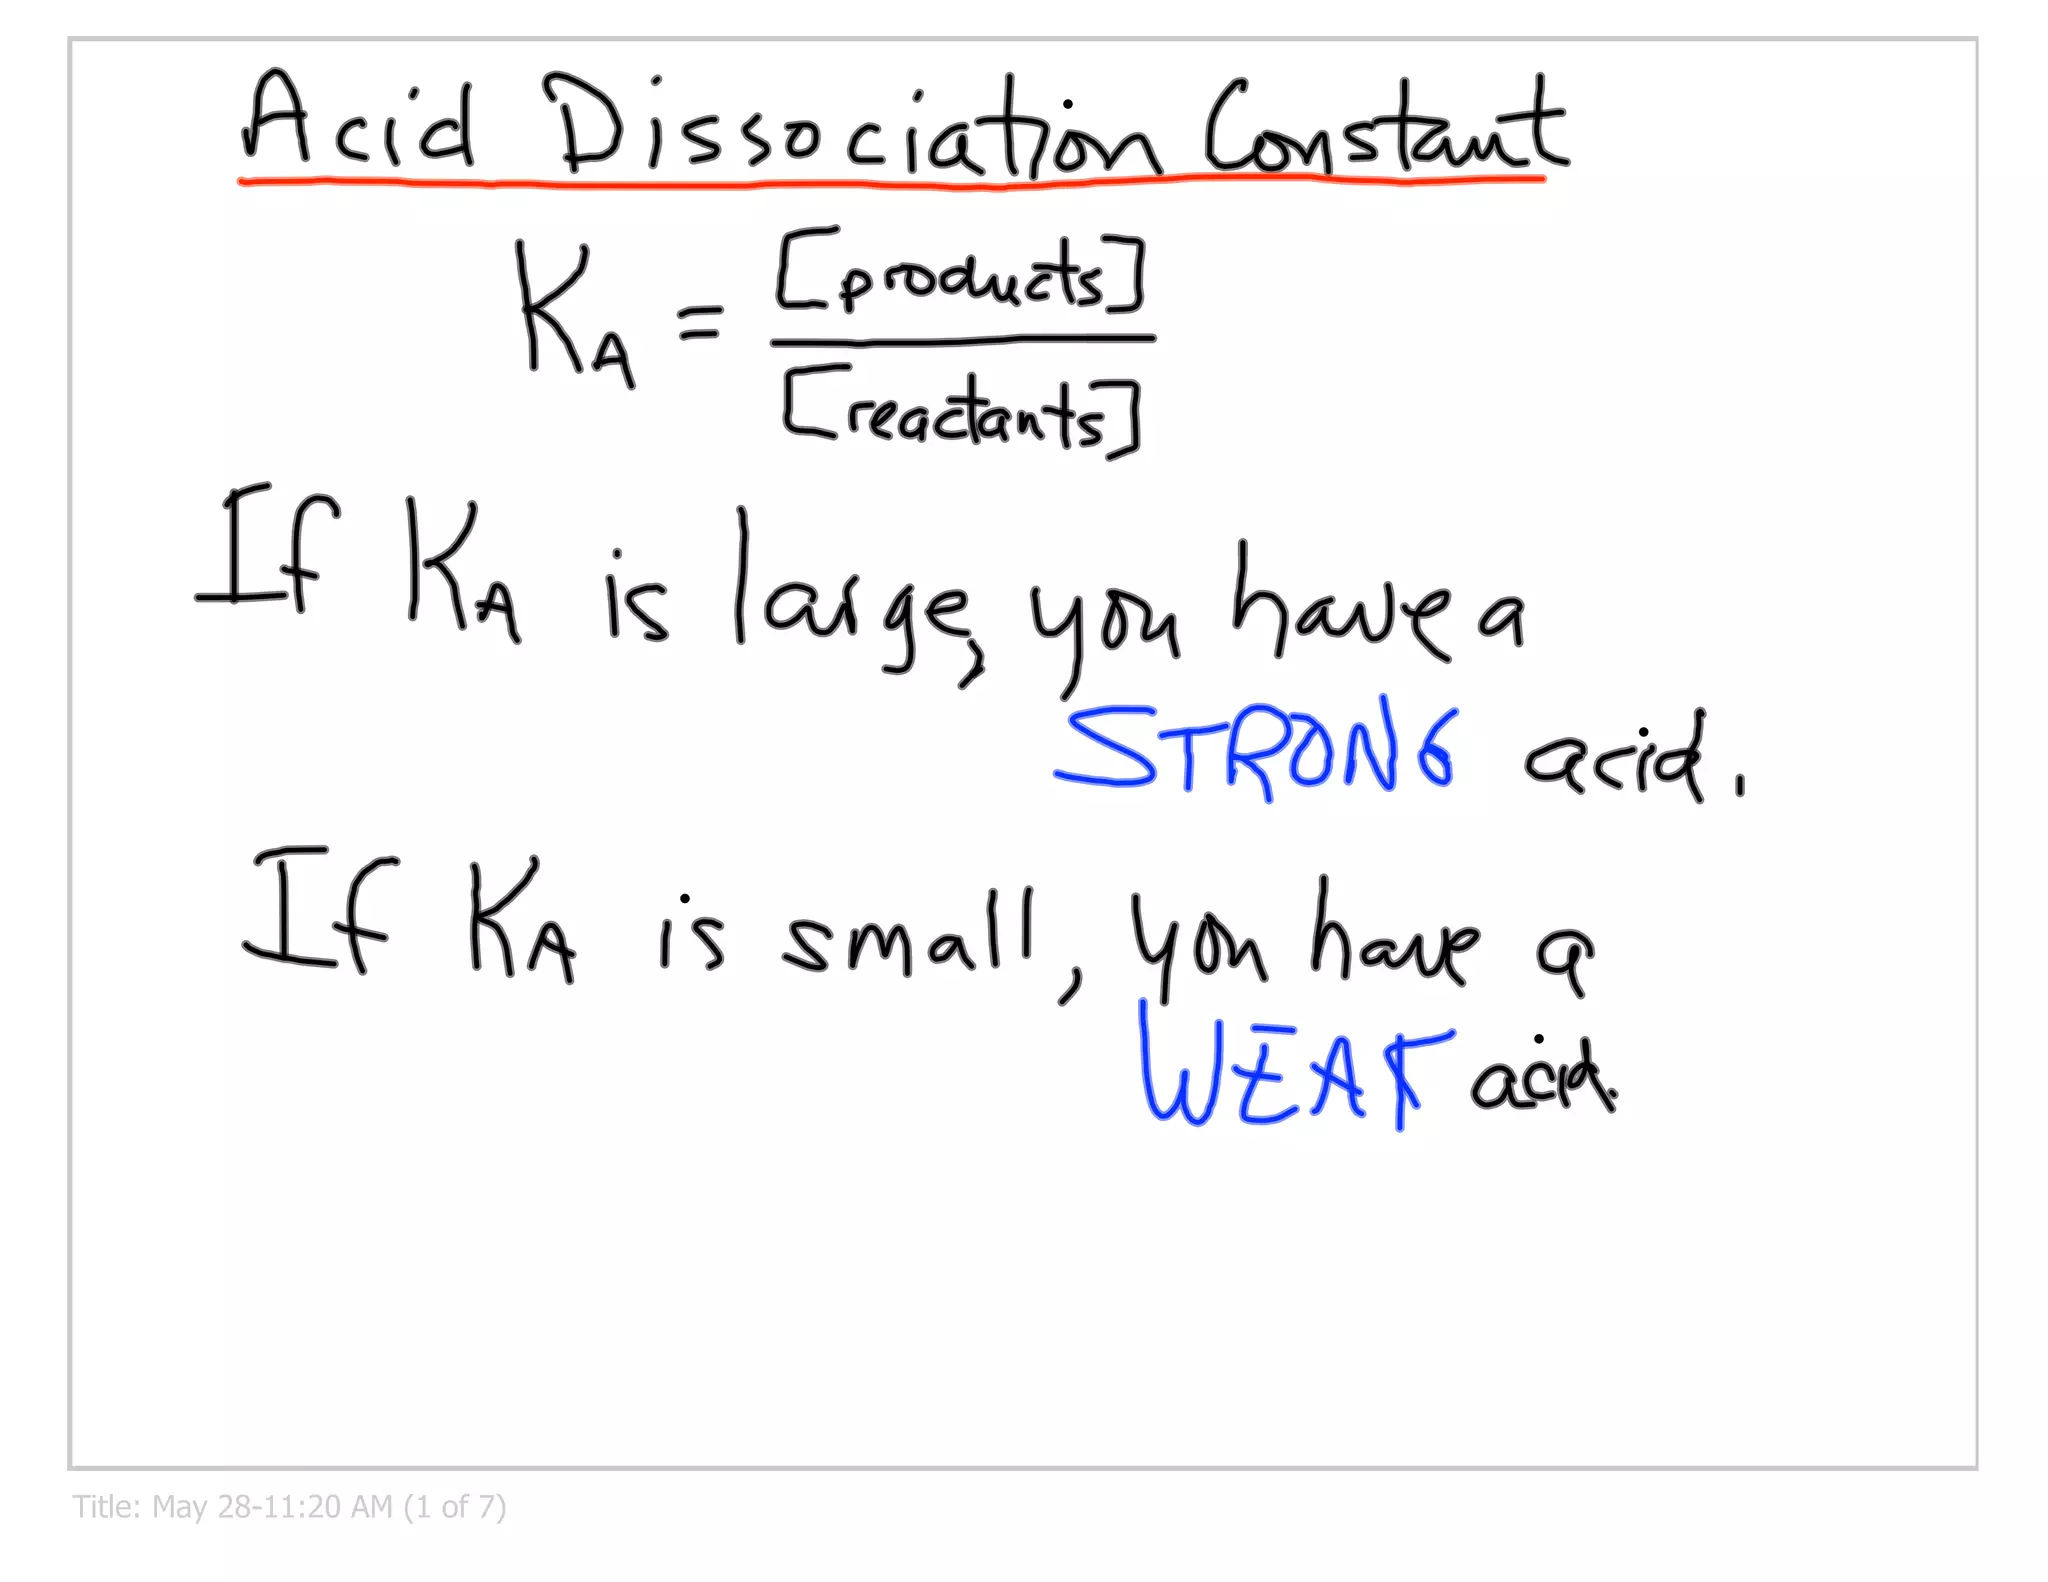 Acid Dissociation Constant
KA = [products]
[reactants]
If KA is large, you have a
STRONG acid.
If KA is small, you have a
WEAK acid.
Title: May 28-11:20 AM (1 of 7)